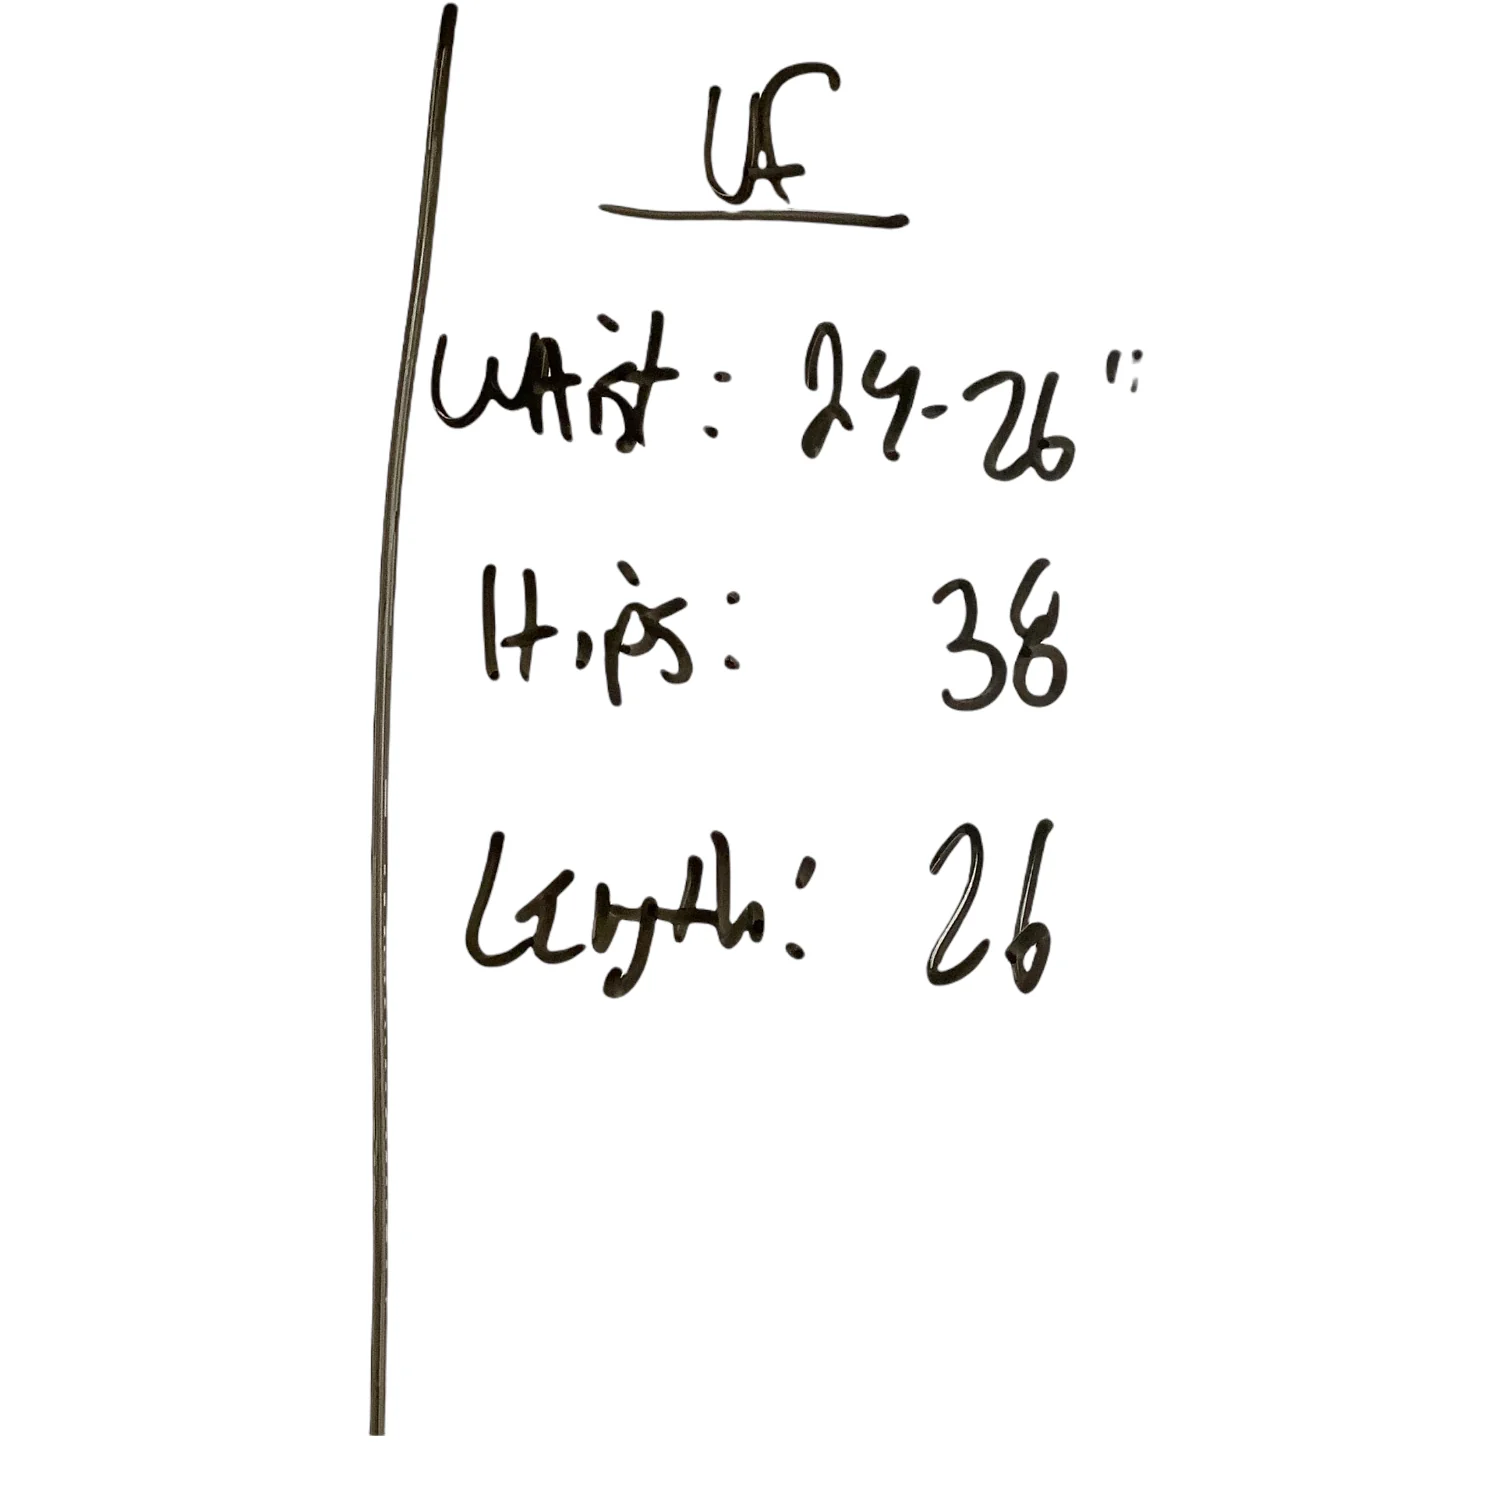 Waist: 24-26"
Hips: 38
Length: 26